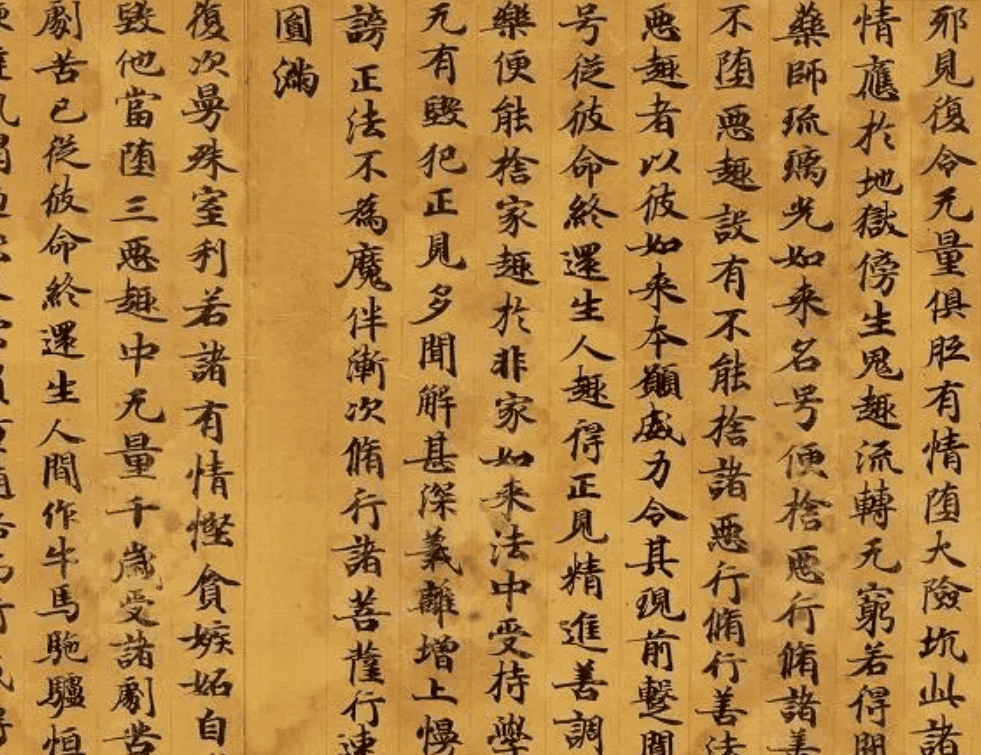 邪見復令无量俱胝有情堕大險坑此諸
情應於地獄傍生鬼趣流轉无窮若得聞
藥師琉璃光如来名号便捨惡行脩諸善
不堕惡趣設有不能捨諸惡行脩行善法
惡趣者以彼如来本願威力令其現前蹔聞
号從彼命終還生人趣得正見精進善調
樂便能捨家趣於非家如来法中受持學
无有毀犯正見多聞解甚深義離增上慢
謗正法不為魔伴漸次脩行諸菩薩行速
圓滿
復次曼殊室利若諸有情慳貪嫉妬自
毀他當堕三惡趣中无量千歲受諸劇苦
劇苦已從彼命終還生人間作牛馬駞驢恒